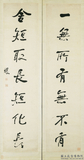 一無所有無不有
舍短取長短化長